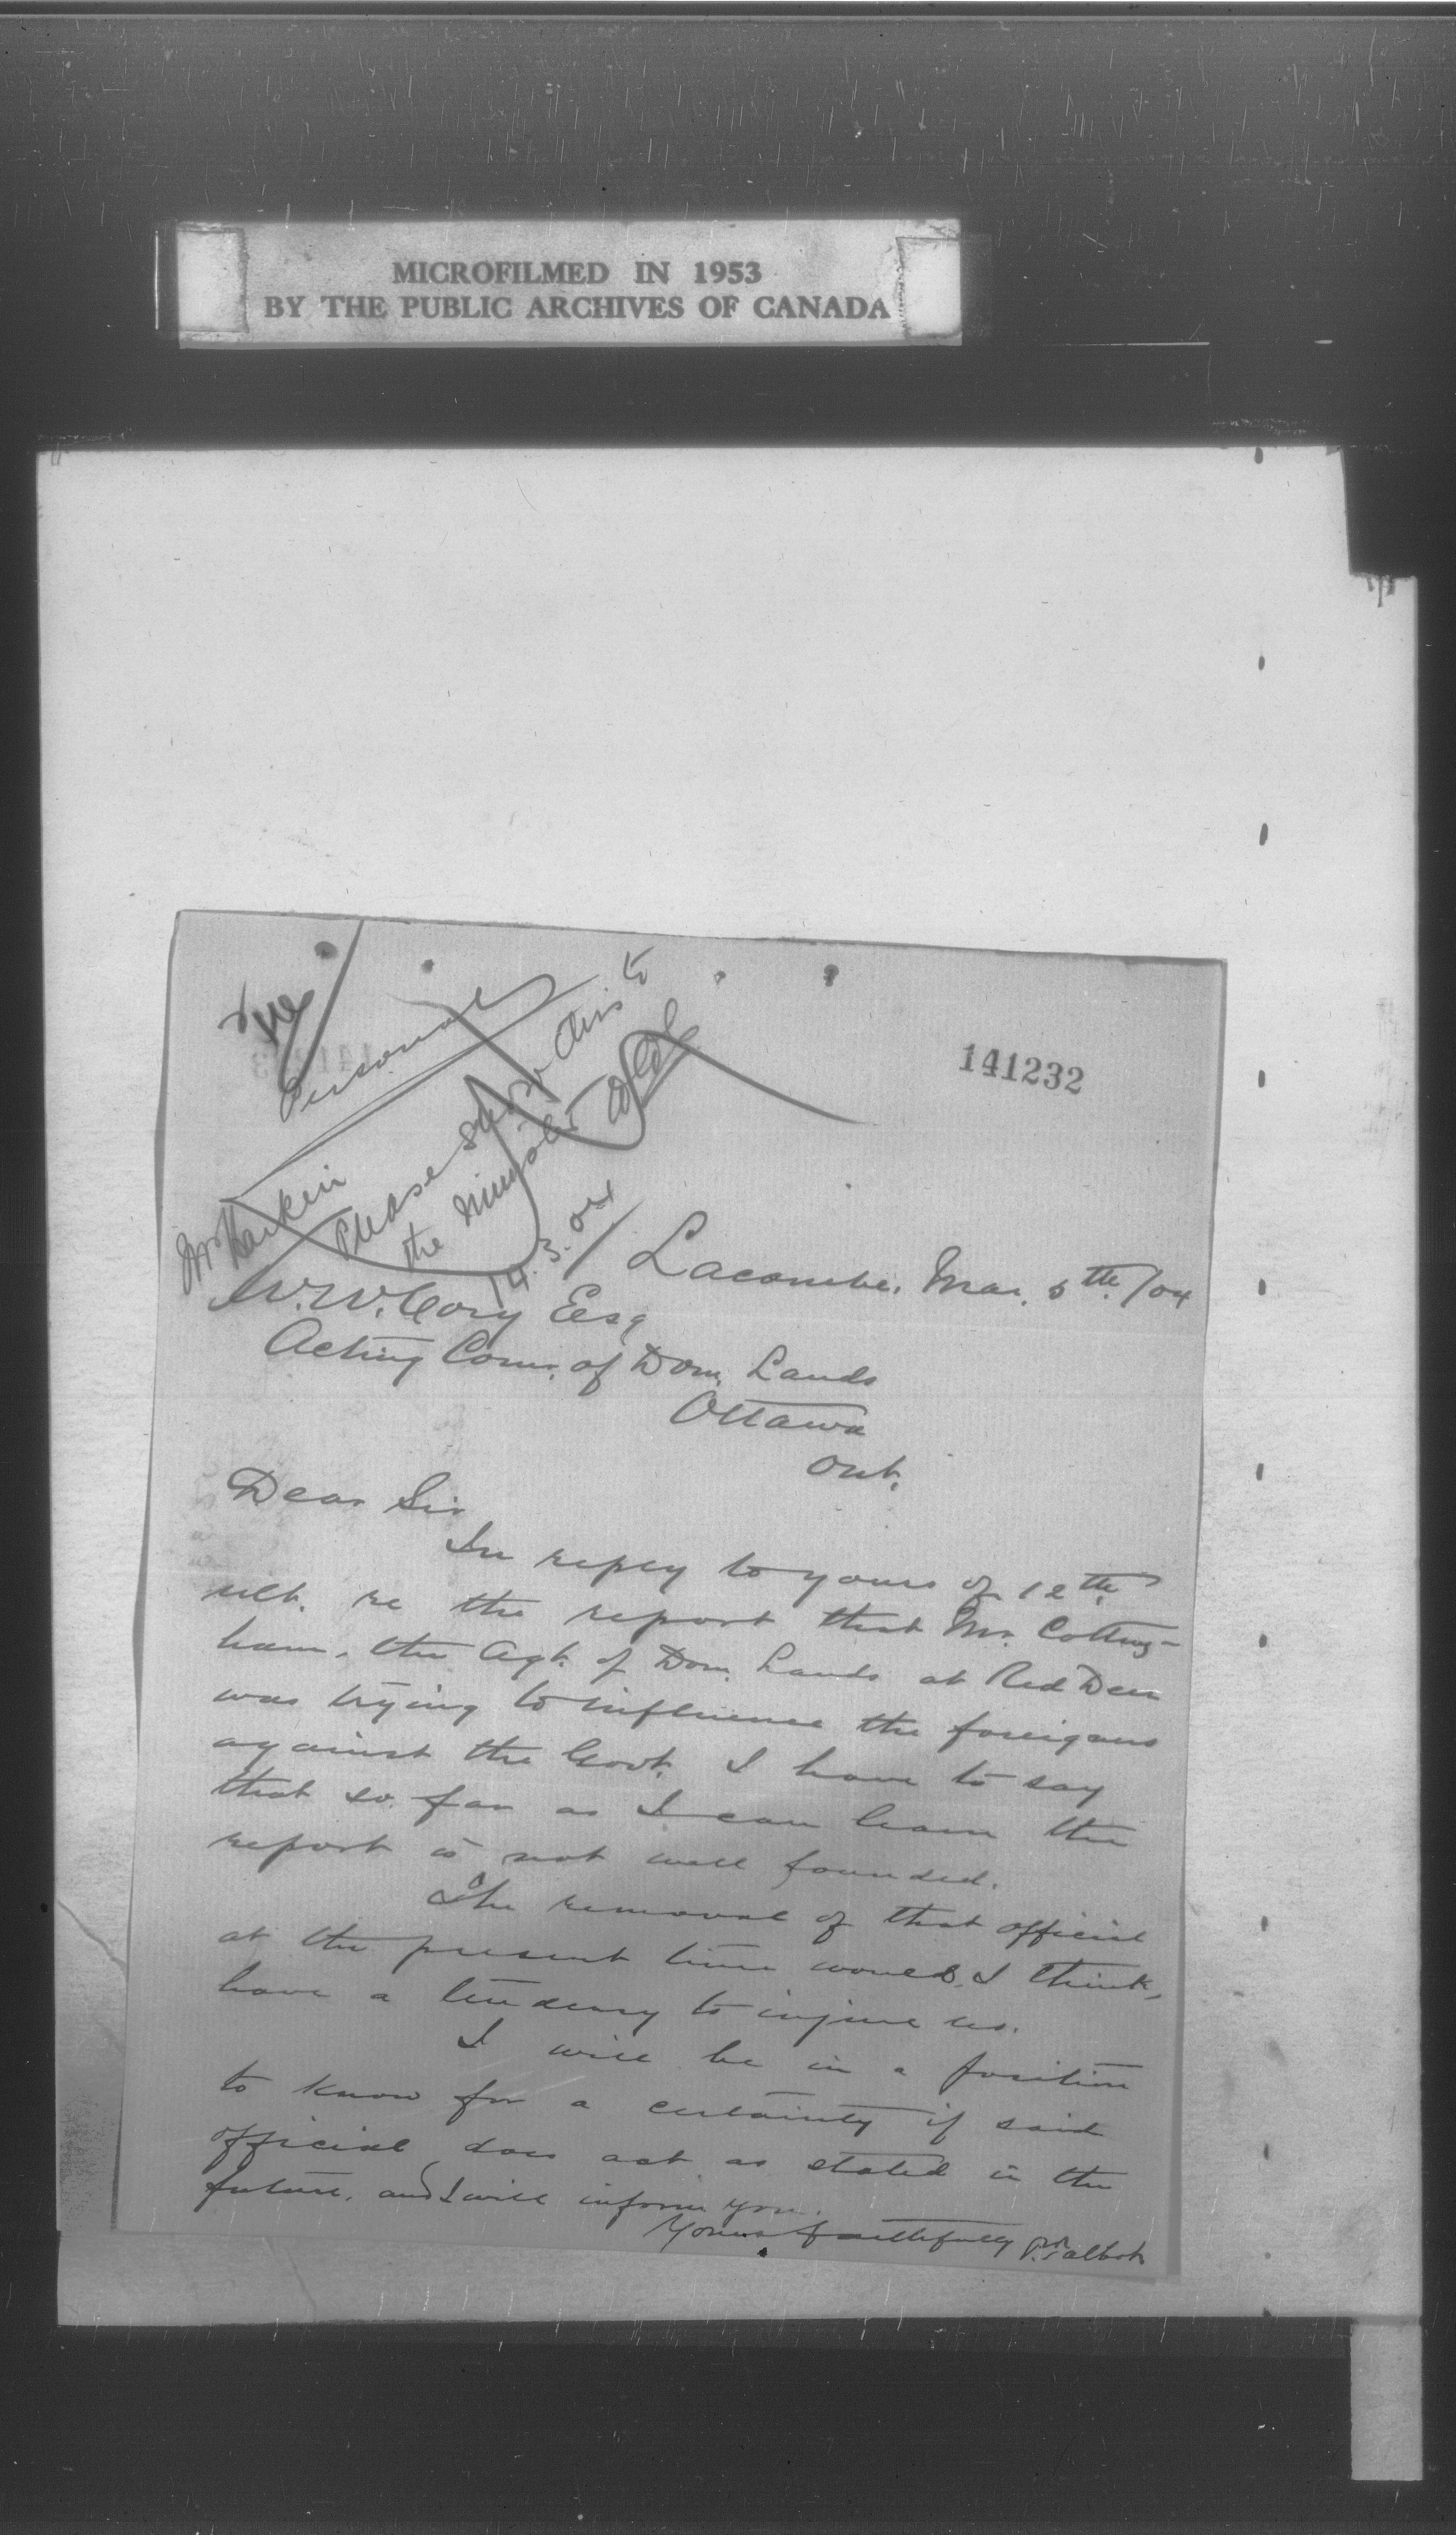 MICROFILMED IN 1953
BY THE PUBLIC ARCHIVES OF CANADA
141232
Personal
Mr Harkin
Please show this to
the Minister
14.3.04
Lacombe, Mar. 5th /04
W.W. Cory Esq
Acting Com. of Dom. Lands
Ottawa
Ont.
Dear Sir
In reply to yours of 12th
ult. re the report that Mr. Cotting-
ham, the Agt. of Dom. Lands at Red Deer
was trying to influence the foreigners
against the Govt. I have to say
that so far as I can learn the
report is not well founded.
The removal of that official
at the present time would, I think,
have a tendency to injure us.
I will be in a position
to know for a certainty if said
official does act as stated in the
future, and I will inform you.
Yours faithfully P. Talbot